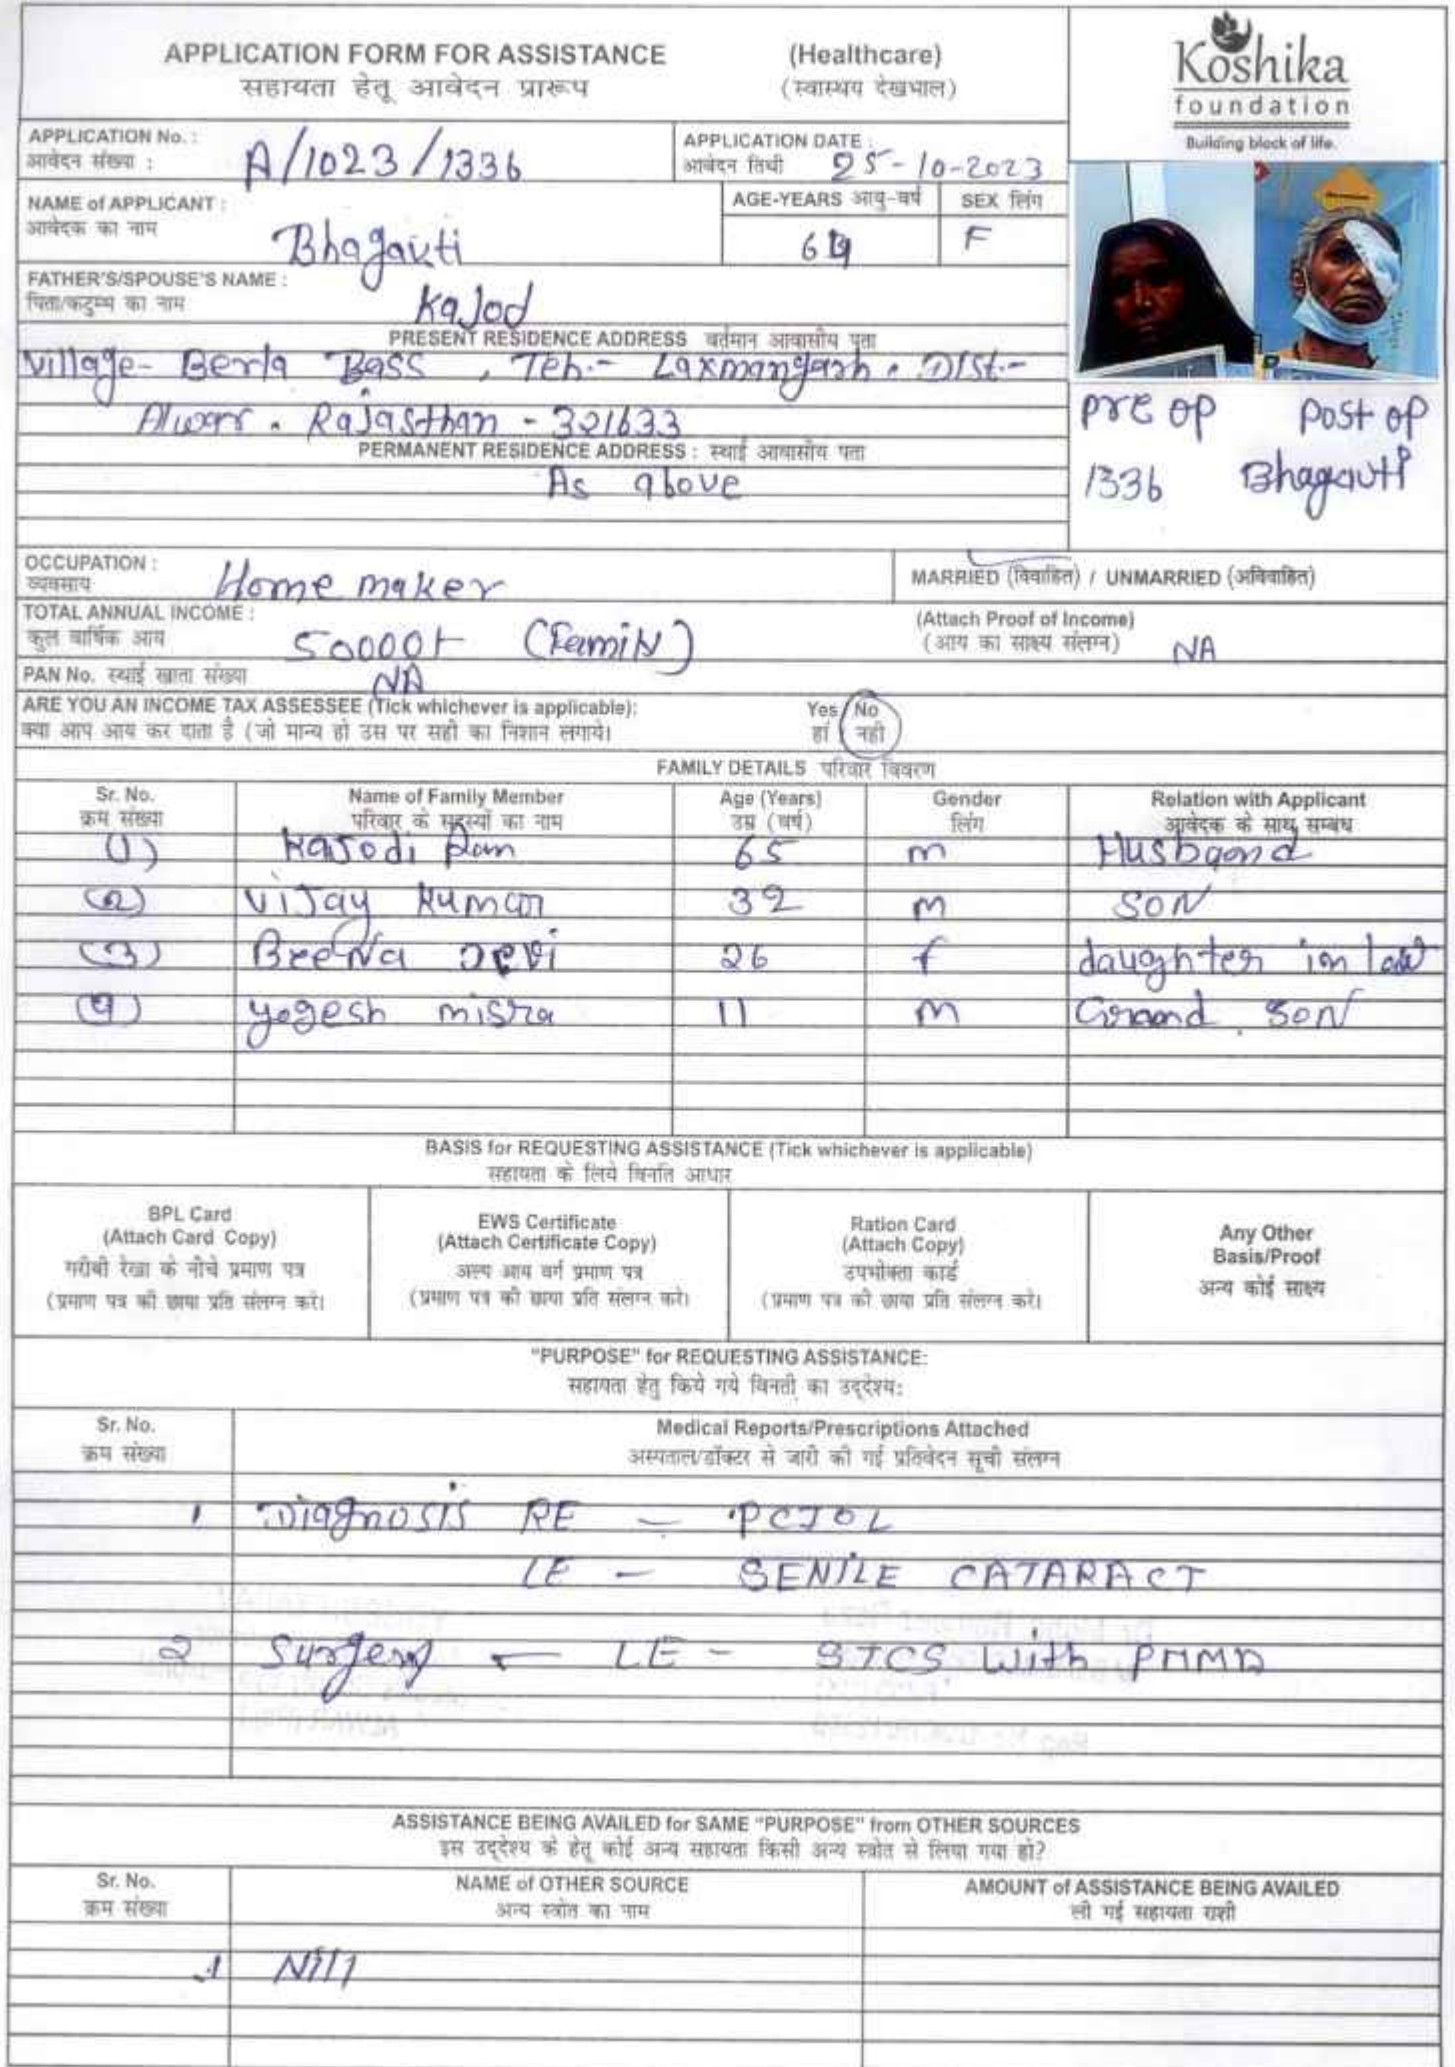 APPLICATION FORM FOR ASSISTANCE (Healthcare)
सहायता हेतू आवेदन प्रारूप (स्वास्थय देखभाल)
Koshika
foundation
Building block of life.
APPLICATION No. : A/1023/1336
आवेदन संख्या :
APPLICATION DATE : 25-10-2023
आवेदन तिथी
NAME of APPLICANT : Bhagavti
आवेदक का नाम
AGE-YEARS आयु-वर्ष
SEX लिंग
F
FATHER'S/SPOUSE'S NAME : Kajod
पिता/कटुम्ब का नाम
PRESENT RESIDENCE ADDRESS वर्तमान आवासीय पता
Village- Berla Bass , Teh.- Laxmangarh . Dist.-
Alwar . Rajasthan - 321633
PERMANENT RESIDENCE ADDRESS : स्थाई आवासीय पता
As above
pre op post op
1336 Bhagavti
OCCUPATION : Home maker
व्यवसाय
MARRIED (विवाहित) / UNMARRIED (अविवाहित)
TOTAL ANNUAL INCOME : 50000/- (Family)
कुल वार्षिक आय
(Attach Proof of Income)
(आय का साक्ष्य संलग्न) NA
PAN No. स्थाई खाता संख्या NA
ARE YOU AN INCOME TAX ASSESSEE (Tick whichever is applicable): Yes/No
क्या आप आय कर दाता है (जो मान्य हो उस पर सही का निशान लगाये। हां नही
FAMILY DETAILS परिवार विवरण
Sr. No. Name of Family Member Age (Years) Gender Relation with Applicant
क्रम संख्या परिवार के सदस्यों का नाम उम्र (वर्ष) लिंग आवेदक के साथ सम्बध
(1) Kajodi Ram 65 m Husband
(2) Vijay Kumar 32 m SON
(3) BreeNa Devi 26 f daughter in law
(4) yogesh misra 11 m Grand SON
BASIS for REQUESTING ASSISTANCE (Tick whichever is applicable)
सहायता के लिये विनति आधार
BPL Card
(Attach Card Copy)
गरीबी रेखा के नीचे प्रमाण पत्र
(प्रमाण पत्र की छाया प्रति संलग्न करे।
EWS Certificate
(Attach Certificate Copy)
अल्प आय वर्ग प्रमाण पत्र
(प्रमाण पत्र की छाया प्रति संलग्न करे।
Ration Card
(Attach Copy)
उपभोक्ता कार्ड
(प्रमाण पत्र की छाया प्रति संलग्न करे।
Any Other
Basis/Proof
अन्य कोई साक्ष्य
"PURPOSE" for REQUESTING ASSISTANCE:
सहायता हेतु किये गये विनती का उद्देश्य:
Sr. No. Medical Reports/Prescriptions Attached
क्रम संख्या अस्पताल/डॉक्टर से जारी की गई प्रतिवेदन सूची संलग्न
1 Diagnosis RE - PCIOL
LE - SENILE CATARACT
2 Surgery - LE - SICS with PMMA
ASSISTANCE BEING AVAILED for SAME "PURPOSE" from OTHER SOURCES
इस उद्देश्य के हेतू कोई अन्य सहायता किसी अन्य स्त्रोत से लिया गया हो?
Sr. No. NAME of OTHER SOURCE AMOUNT of ASSISTANCE BEING AVAILED
क्रम संख्या अन्य स्त्रोत का नाम ली गई सहायता राशी
1 Nill